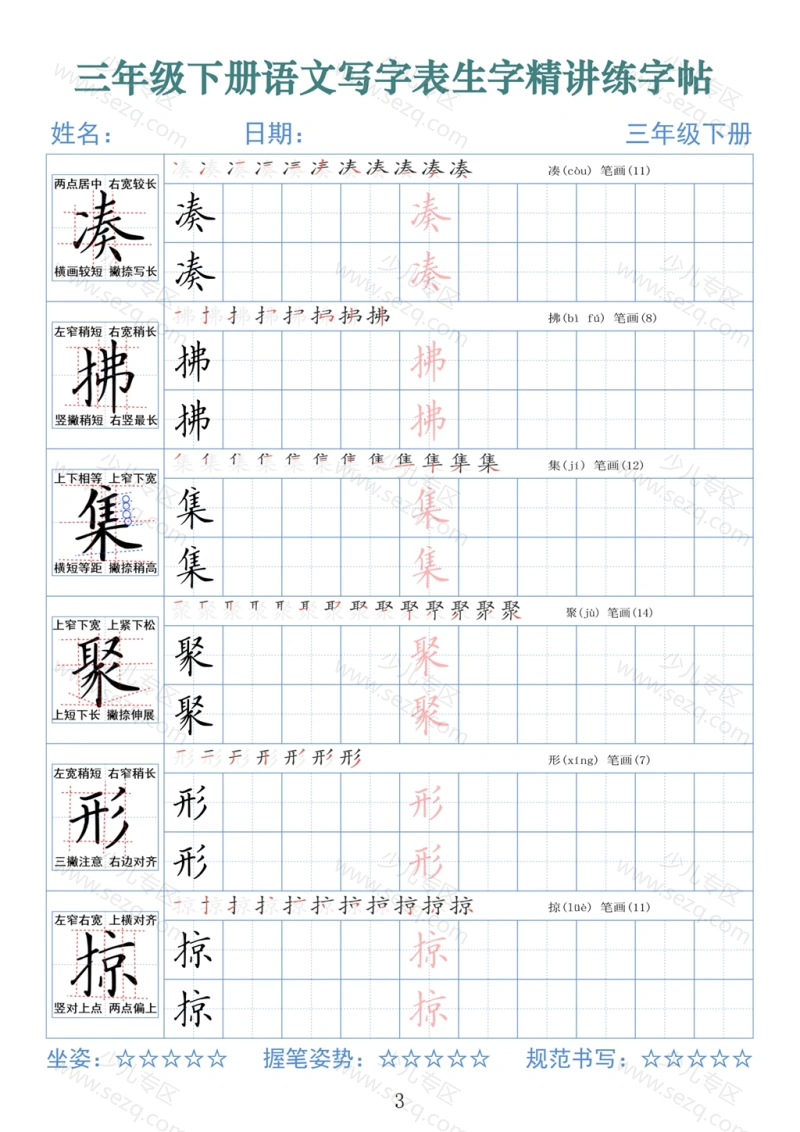 三年级下册语文写字表生字精讲练字帖
姓名: 日期: 三年级下册
两点居中 右宽较长
凑
横画较短 撇捺写长
凑(còu) 笔画(11)
凑 凑
凑 凑
左窄稍短 右宽稍长
拂
竖撇稍短 右竖最长
拂(bì fú) 笔画(8)
拂 拂
拂 拂
上下相等 上窄下宽
集
横短等距 撇捺稍高
集(jí) 笔画(12)
集 集
集 集
上窄下宽 上紧下松
聚
上短下长 撇捺伸展
聚(jù) 笔画(14)
聚 聚
聚 聚
左宽稍短 右窄稍长
形
三撇注意 右边对齐
形(xíng) 笔画(7)
形 形
形 形
左窄右宽 上横对齐
掠
竖对上点 两点偏上
掠(lüè) 笔画(11)
掠 掠
掠 掠
坐姿: ☆☆☆☆☆ 握笔姿势: ☆☆☆☆☆ 规范书写: ☆☆☆☆☆
3
少儿专区
www.sezq.com